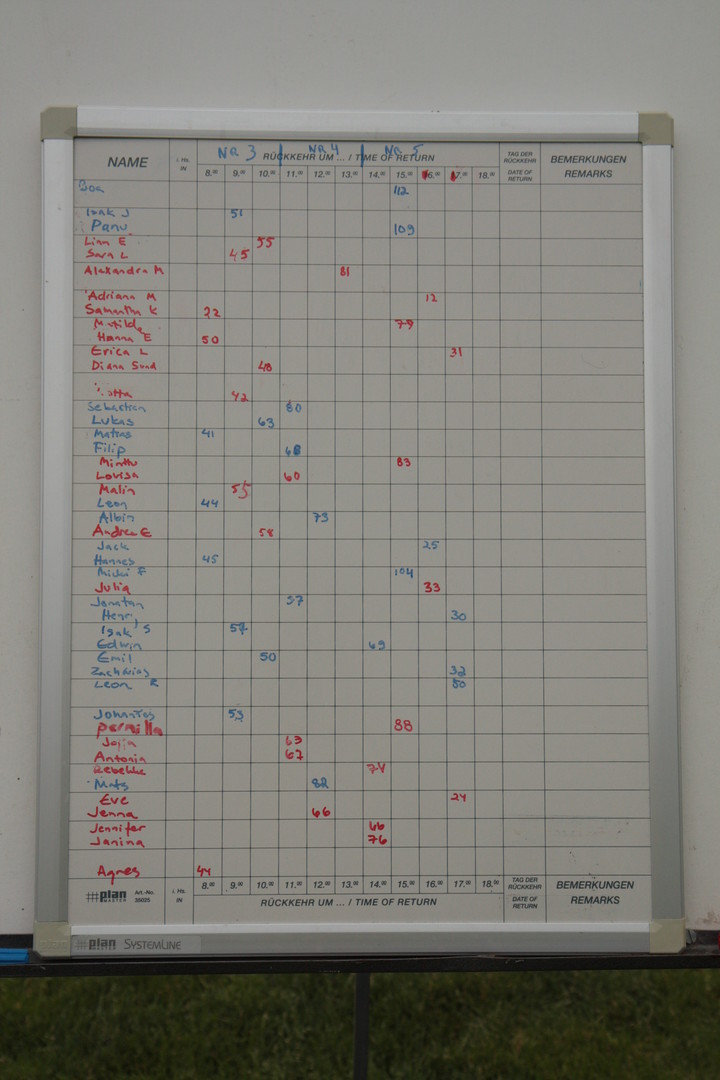 NR 3 | NR 4 | NR 5
NAME i. Hs. IN RÜCKKEHR UM ... / TIME OF RETURN TAG DER RÜCKKEHR DATE OF RETURN BEMERKUNGEN REMARKS
8.00 9.00 10.00 11.00 12.00 13.00 14.00 15.00 16.00 17.00 18.00
Boa 112
Isak J 51
Panu 109
Lian E 55
Sara L 45
Alexandra M 81
Adriana M 12
Samantha K 22
Matilda 79
Hanna E 50
Erica L 31
Diana Sund 48
42
Sebastian 80
Lukas 63
Mattas 41
Filip 68
Minttu 83
Lovisa 60
Malin 55
Leon 44
Albin 73
Andrea E 58
Jack 25
Hannes 45
Micki F 104
Julia 33
Jonatan 57
Henri 30
Isak S 57
Edwin 69
Emil 50
Zacharias 32
Leon R 50
Johannes 53
Pernilla 88
63
Antonia 67
Rebekka 74
Mats 82
Eve 24
Jenna 66
Jennifer 66
Janina 76
Agnes 44
#plan MASTER Art.-No. 30025 i. Hs. IN 8.00 9.00 10.00 11.00 12.00 13.00 14.00 15.00 16.00 17.00 18.00 TAG DER RÜCKKEHR DATE OF RETURN BEMERKUNGEN REMARKS
RÜCKKEHR UM ... / TIME OF RETURN
#plan SYSTEMLINE